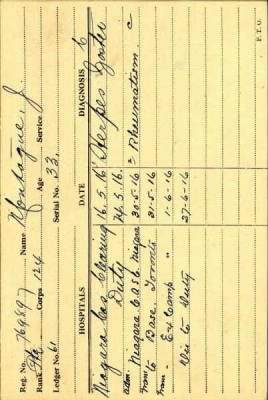 Reg. No. 769897 Name Montague, J.
Rank Pte Corps 124 Age Service
Ledger No. 61 Serial No. 33.
HOSPITALS DATE DIAGNOSIS
Niagara Cas Clearing 16.5.16 Herpes Zoster
Duty 24.5.16.
Adm. Niagara C.A.S.C. Niagara 30-5-16 Rheumatism. c
Trans to Base. Toronto 31-5-16
Trans - Ex Camp " 1-6-16
Dis to Duty 27-6-16
P.T.O.